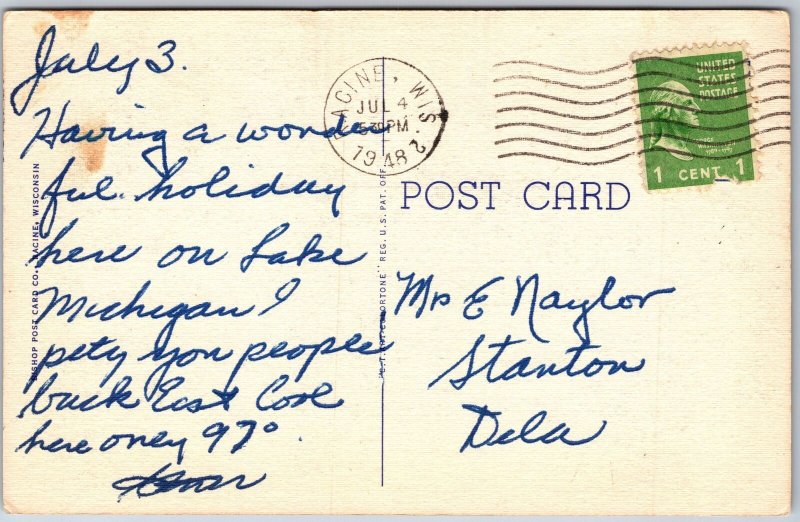 July 3.
Having a wonder
ful holiday
here on Lake
Michigan I
pety you people
back East Cool
here oney 97°.
RACINE, WIS.
JUL 4
5 30 PM
1948
2
UNITED
STATES
POSTAGE
1 CENT 1
POST CARD
Mrs E Naylor
Stanton
Dela
BISHOP POST CARD CO., RACINE, WISCONSIN
REG. U.S. PAT. OFF.